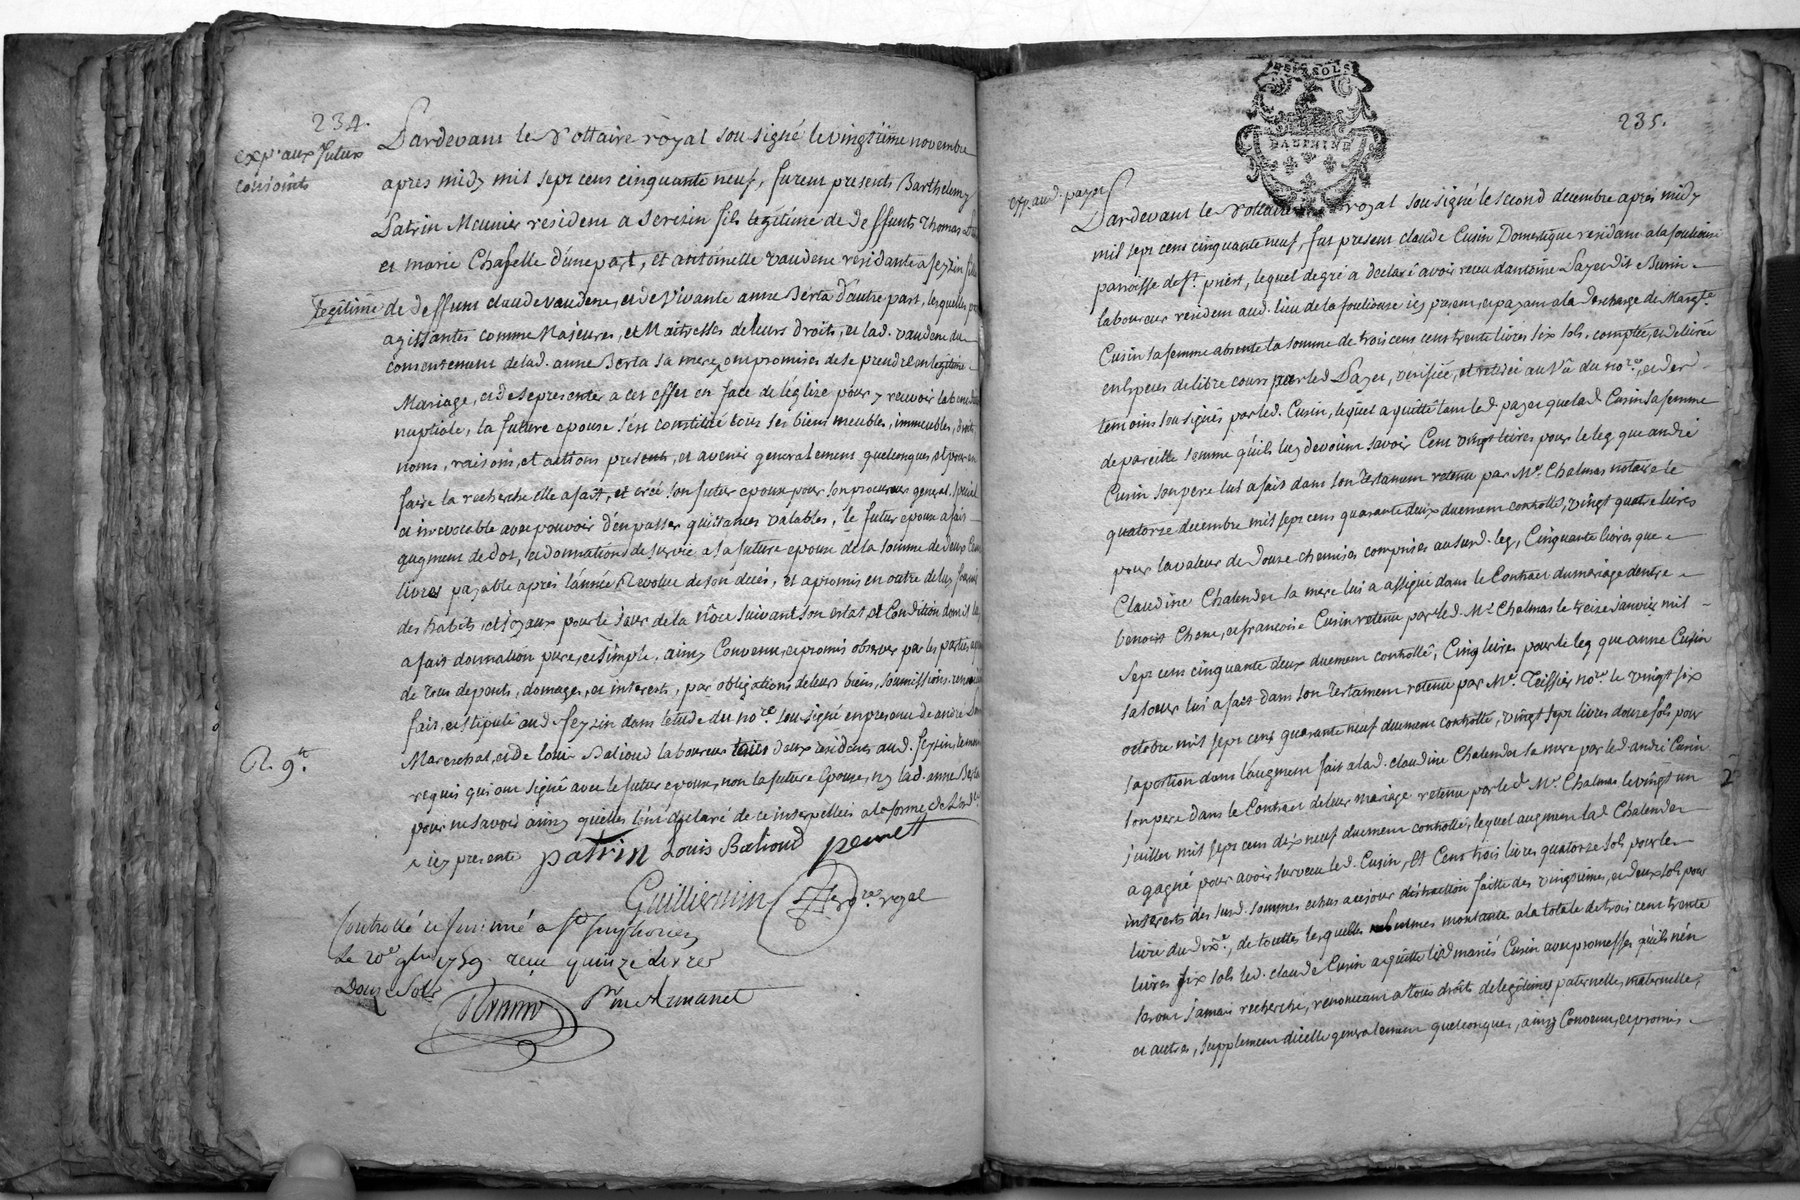 234.
exp.ᵉ aux futurs
conjoints
Pardevant le Nottaire royal sousigné le vingtiéme novembre
apres midy mil sept cens cinquante neuf, furent presents Barthelemy
Patrin Meunier resident a Serezin fils legitime de deffunts Thomas
et marie Chapelle d'une part, et antoinette vaudene residante a feyzin fille
legitime de deffunt claude vaudene, et de vivante anne Berta d'autre part, lesquelles
agissantes comme Majeures, et Maitresses de leurs droits, et lad. vaudene du
consentement de lad. anne Berta sa mere, ont promis de se prendre en legitime
Mariage, et de se presenter a cet effet en face de l'église pour y recevoir la
nuptiale, la future epouse s'est constitué tous ses biens meubles, immeubles, droits,
noms, raisons, et actions presents, et avenir generalement quelconques, et pour en
faire la recherche elle a fait, et créé son futur epoux pour son procureur general, special
et irrevocable avec pouvoir d'en passer quittances valables, le futur epoux a fait
augment de dot, et donnations de survie a sa future epouse de la somme de deux Cens
livres payable après l'année Revolue de son deces, et a promis en outre de luy fournir
des habits, et joyaux pour le jour de la nôce suivant son estat et Condition dont il luy
a fait donnation pure, et simple, ainsy Convenu, et promis observer par les parties, a peine
de tous depents, domages, et interests, par obligations de leurs biens, soumissions, renonciations
fait, et stipulé aud. feyzin dans l'etude du no.ʳᵉ sousigné en presence de andré
Mareschal, et de louis Balioud laboureur tous deux residents aud. feyzin, temoins
requis qui ont signé avec le futur epoux, non la future epouse, ny lad. anne Berta
pour ne savoir ainsy qu'elles l'ont déclaré de ce interpellées a la forme de l'ord.ᶜᵉ
icy presente patrin Louis Balioud perrett
Guilliermin no.ʳᵉ royal
R. 9.ᵗᵉ
Controllé et insinué a S.ᵗ Simphorien
le 20.ᵉ 9bre 1759 reçu quinze livres
Douze Sols
p.ʳ m Armanet
SOLS
DAUPHINE
235.
exp. aud. payet
Pardevant le Nottaire royal sousigné le second decembre après midy
mil sept cens cinquante neuf, fut present claude Cusin Domestique residant a la fouliouse
paroisse de S.ᵗ priest, lequel de gré a declaré avoir receu d'antoine Payet dit Burin
laboureur resident aud. lieu de la fouliouse icy present, et payant a la descharge de Marg.ᵗᵉ
Cusin sa femme absente la somme de trois cens trente livres six sols, comptée, et delivrée
en Especes de libre cours par led. Payet, verifiée, et retirée au Vû du no.ʳᵉ, et des
temoins sousignés par led. Cusin, lequel a quitté tant led. payet que lad. Cusin sa femme
de pareille somme qu'ils luy devoient savoir Cent vingt livres pour le leg que andré
Cusin son pere lui a fait dans son Testament retenu par M.ᵉ Chalmas notaire le
quatorze decembre mil sept cens quarante deux duement controllé, vingt quatre livres
pour la valeur de douze chemises comprises au susd. leg, Cinquante livres que
Claudine Chalender sa mere lui a assigné dans le Contract du mariage d'entre
benoist Chene, et francoise Cusin retenu par led. M.ᵉ Chalmas le treize janvier mil
sept cens cinquante deux duement controllé, Cinq livres pour le leg que anne Cusin
sa sœur lui a fait dans son Testament retenu par M.ᵉ Teissier no.ʳᵉ le vingt six
octobre mil sept cens quarante neuf duement controllé, vingt sept livres douze sols pour
sa portion dans l'augment fait a lad. claudine Chalender sa mere par led. andré Cusin
son pere dans le Contract de leur mariage retenu par led. M.ᵉ Chalmas le vingt un
juillet mil sept cens dix neuf duement controllé, lequel augment lad. Chalender
a gagné pour avoir survecu led. Cusin, et Cent trois livres quatorze sols pour les
interests des susd. sommes echus a ce jour distraction faitte des vingtiemes, et deux sols pour
livre du dix.ᵉ, de touttes lesquelles sommes montante a la totale de trois cens trente
livres six sols led. claude Cusin a quitté lesd. mariés Cusin avec promesses qu'ils n'en
seront jamais recherchés, renonceant a tous droits de legitimes paternelle, maternelle,
et autres, supplement d'icelle generalement quelconques, ainsy Convenu, et promis
2